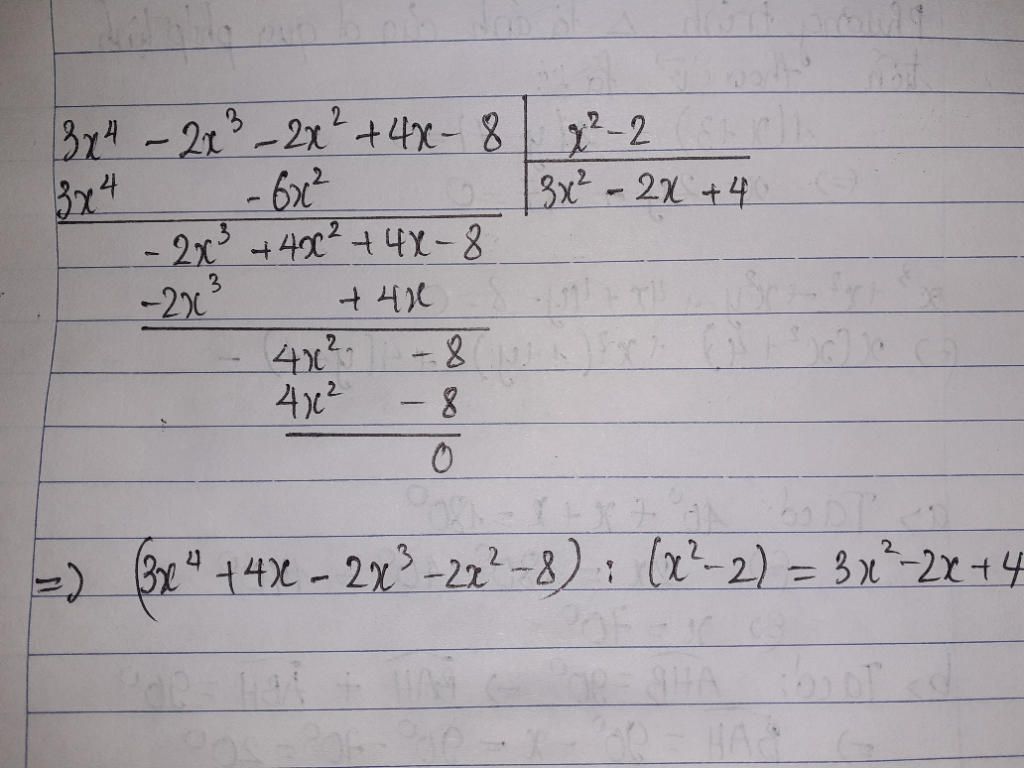 3x⁴ - 2x³ - 2x² + 4x - 8 | x² - 2
3x⁴ - 6x² | 3x² - 2x + 4
- 2x³ + 4x² + 4x - 8
- 2x³ + 4x
4x² - 8
4x² - 8
0
=) (3x⁴ + 4x - 2x³ - 2x² - 8) : (x² - 2) = 3x² - 2x + 4